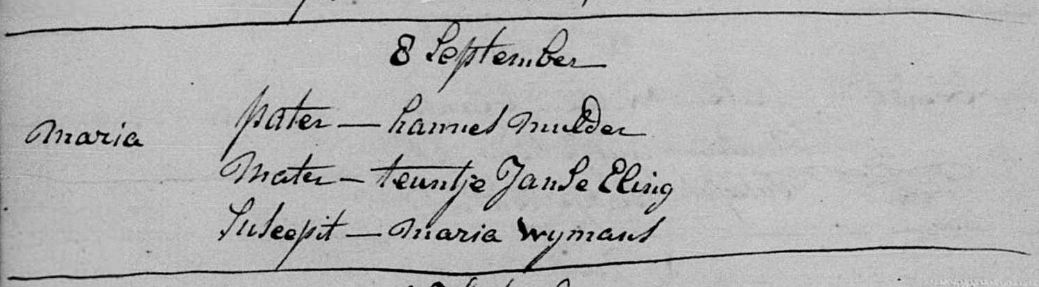 8 September
Maria
pater — hannes mulder
Mater — teuntje Janse Eling
Suscepit — maria wymans